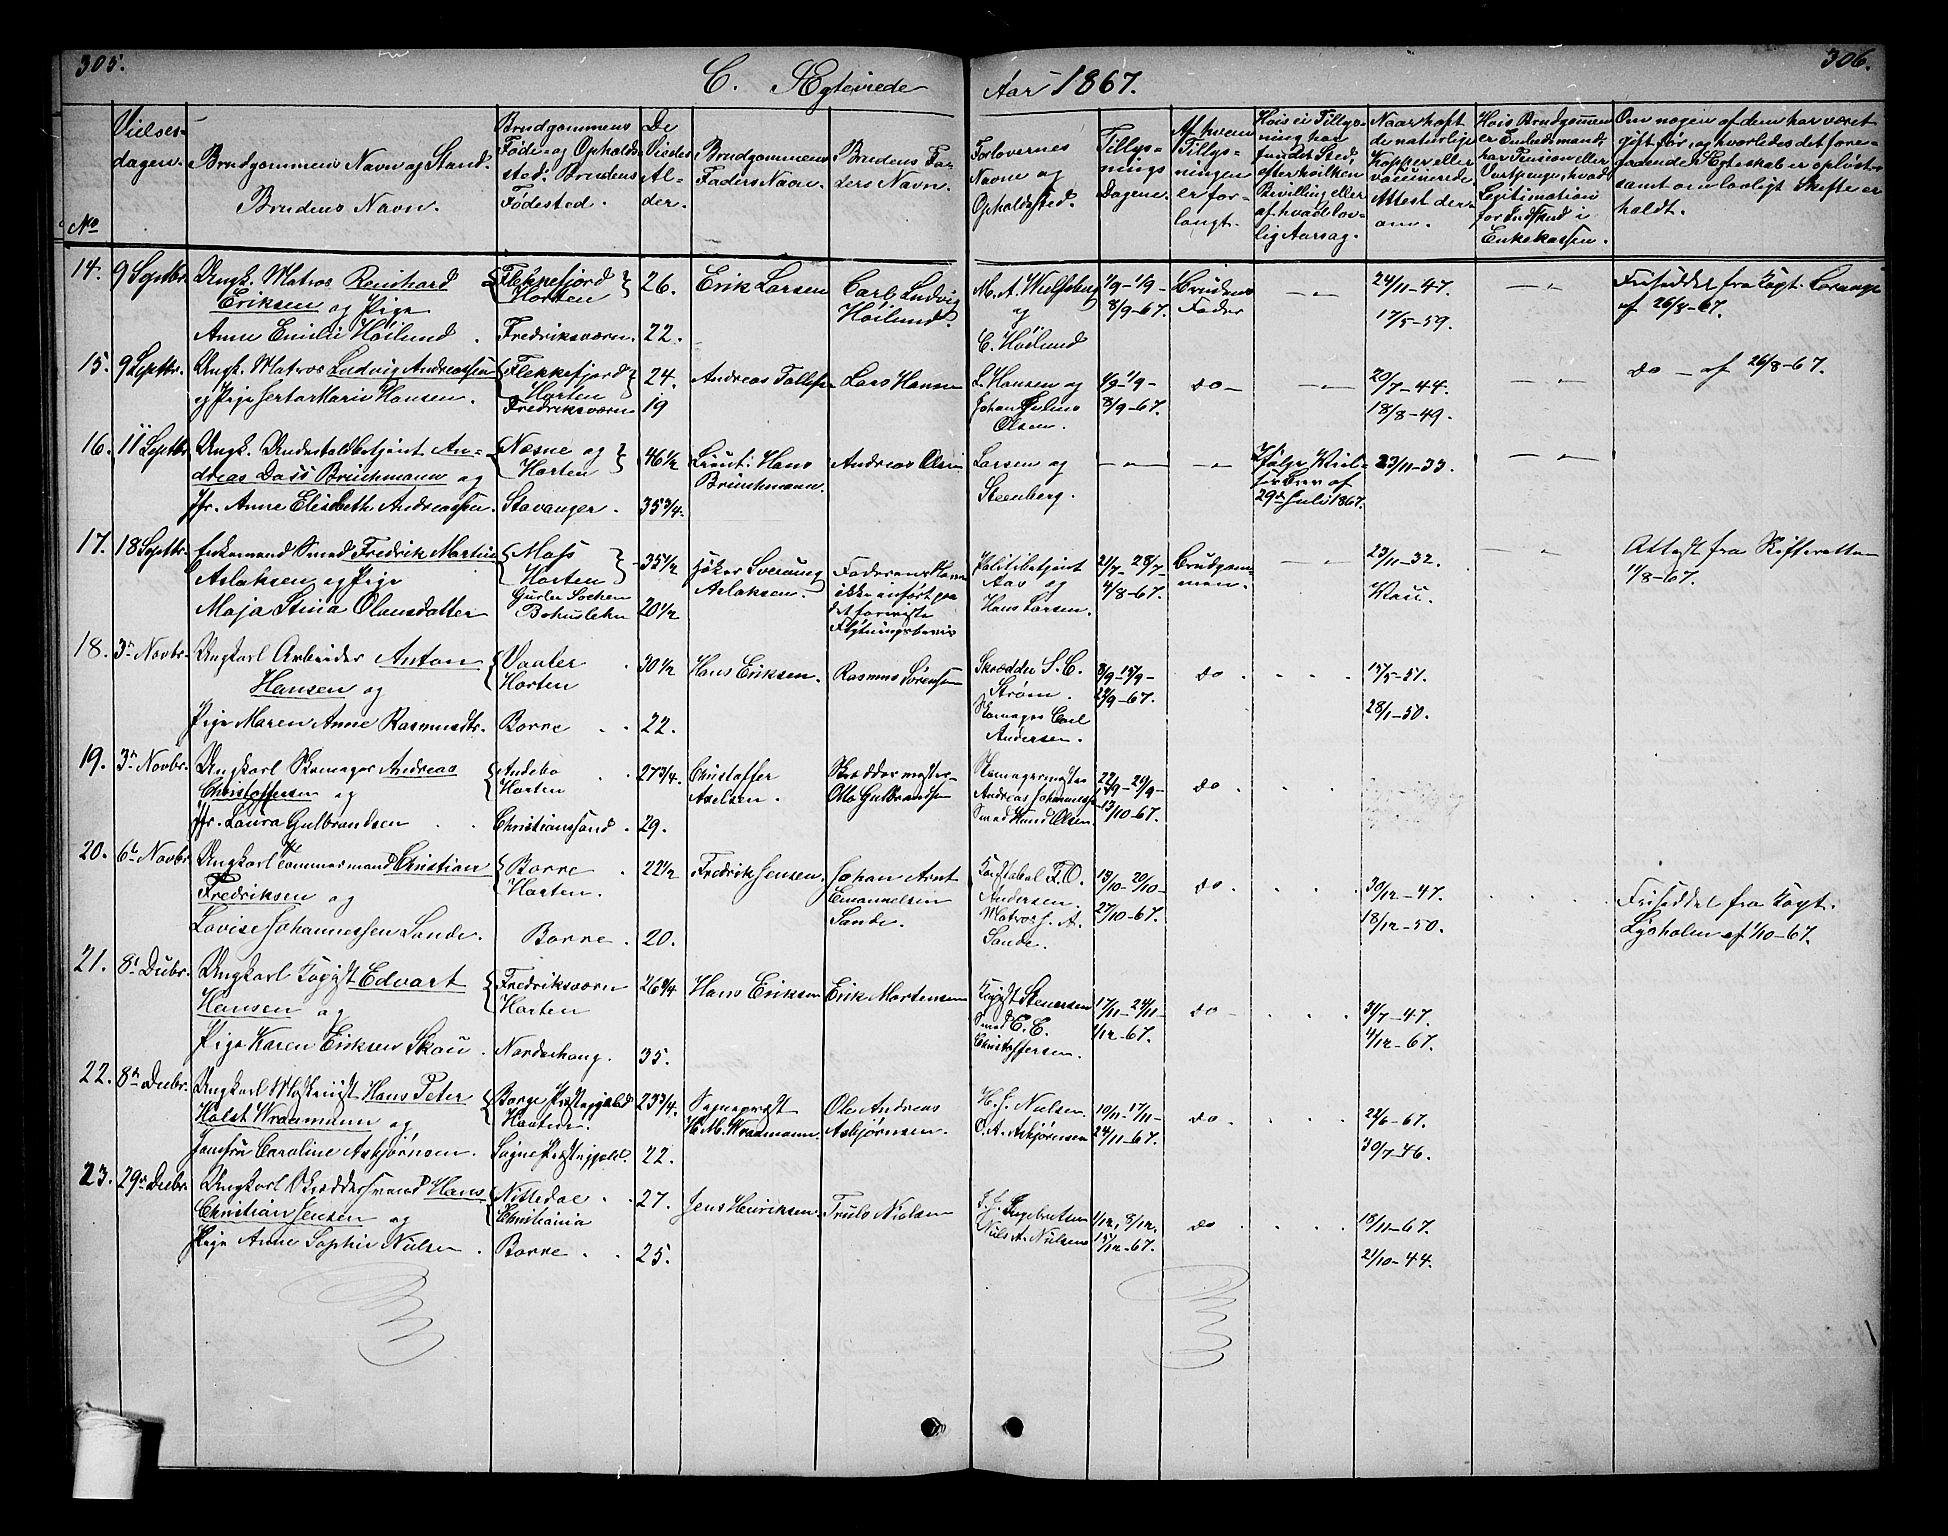 305.
C. Ægteviede
Aar 1867.
306.
No
Vielses-
dagen.
Brudgommens Navn og Stand.
Brudens Navn.
Brudgommens
Føde- og Opholds-
sted. Brudens
Fødested.
De
Viedes
Al-
der.
Brudgommens
Faders Navn.
Brudens Fa-
ders Navn.
Forlovernes
Navne og
Opholdssted.
Tillys-
nings
Dagene.
Af hvem
Tillys-
ningen
er for-
langt.
Hvis ei Tillys-
ning har
fundet Sted,
efter hvilken
Bevilling eller
af hvad lov-
lig Aarsag.
Naar haft
de naturlige
Kopper eller
vaccinerede.
Attest der-
om.
Hvis Brudgommen
er Embedsmand,
har Pension eller
Vartpenge, hvad
Legitimation
for Indskud i
Enkekassen.
Om nogen af dem har været
gift før, og hvorledes det fore-
gaaende Ægteskab er opløst
samt om lovligt Skifte er
holdt.
14. 9 Septbr. Ungk. Matros Reinhard Flekkefjord 26. Erik Larsen Carl Ludvig M. A. Wulfsberg 1/9 - 1/9 - Brudens 24/11-47. Friseddel fra Capt.
Eriksen og Pige Horten Høilund. og 8/9-67. Fader af 26/8-67.
Anne Emilie Høilund. Fredriksværn. 22. C. Höilund 17/5-59.
15. 9 Septbr. Ungk. Matros Ludvig Andreassen Flekkefjord 24. Andreas Tollefsen Lars Hansen L. Hansen og 1/9 - 1/9 - do - 20/7-44. do - af 26/8-67.
og Pige Hansen. Horten Johan Julius 8/9-67.
Fredriksværn 19 Olsen. 18/8-49.
16. 11 Septbr. Ungk. Underholdbetjent An- Næsne og 46 1/2 Lieut. Hans Andreas Olsen Larsen og Ifølge 23/11-33.
dreas Dass Brinchmann og Horten Brinchmann. Steenberg. Brev af
Jfr. Anne Elisabeth Andreassen. Stavanger. 35 3/4. 29de Juli 1867.
17. 18 Septbr. Enkemand Smed Fredrik Martin Moss 35 1/2 Sverung Faderens Navn Politibetjent 21/7 - 28/7 - Brudgom- 23/11-32. Attest fra Skifteretten
Aslaksen og Pige Horten Aslaksen. ikke anført paa Aas og 4/8-67. men. 1/8-67.
Maja Stina Olausdatter Bohuslehn 20 1/2 det foreviste Hans Larsen.
Flytningsbevis
18. 3die Novbr. Ungkarl Arbeider Anton Vaaler 30 1/2 Hans Eriksen. Rasmus Sørensen Skrædder S. C. 8/9 - 15/9 - do. 15/5-51.
Hansen og Horten Strøm. 22/9-67.
Pige Maren Anne Rasmusdtr. Borre 22. Skomager Carl 28/1-50.
Andersen.
19. 3die Novbr. Ungkarl Skomager Andreas Andebo 27 3/4. Christoffer Skræddermester Skomagermester 22/9 - 29/9 - do.
Christoffersen og Horten Axelsen. Otto Gulbrandsen Andreas Johannessen 13/10-67.
Jfr. Laura Gulbrandsen Christianssand. 29. Smed Olsen.
20. 6te Novbr. Ungkarl Tømmermand Christian Borre 22 1/2 Fredrik Jensen. Johan Arnt Konstabel F. O. 13/10 - 20/10 - do. 30/12-47. Friseddel fra Capt.
Fredriksen og Horten. Emanuelsen Andersen. 27/10-67. Lysholm af 1/10-67.
Lovise Johannessen Sande. Borre. 20. Sande. Matros J. A. 18/12-50.
Sande.
21. 8de Decbr. Ungkarl Edvart Fredriksværn 26 3/4 Hans Eriksen Erik Mortensen Steuersen 17/11 - 24/11 - do - 31/7-47.
Hansen og Horten Smed C. E. 1/12-67.
Pige Karen Eriksen Skou. Norderhoug. 35. Christoffersen. 4/12-67.
22. 8de Decbr. Ungkarl Hans Peter Borge Præstegjeld 23 3/4. Sogneprest Ole Andreas H. J. Nielsen 10/11 - 17/11 - do. 22/6-67.
Holst Wraamann og Horten. H. M. Wraamann. Asbjørnsen. O. A. Asbjørnsen 24/11-67.
Jomfru Caroline Asbjørnsen. Præstegjeld. 22. 30/7-46.
23. 29de Decbr. Ungkarl Skræddersvend Hans Nittedal 27. Jens Henriksen. Truls Nielsen Ingebretsen 1/12, 8/12, do 18/11-67.
Christian Jensen og Christiania Niels A. Nielsen 15/12-67.
Pige Anne Sophie Nielsen. Borre 25. 21/10-44.